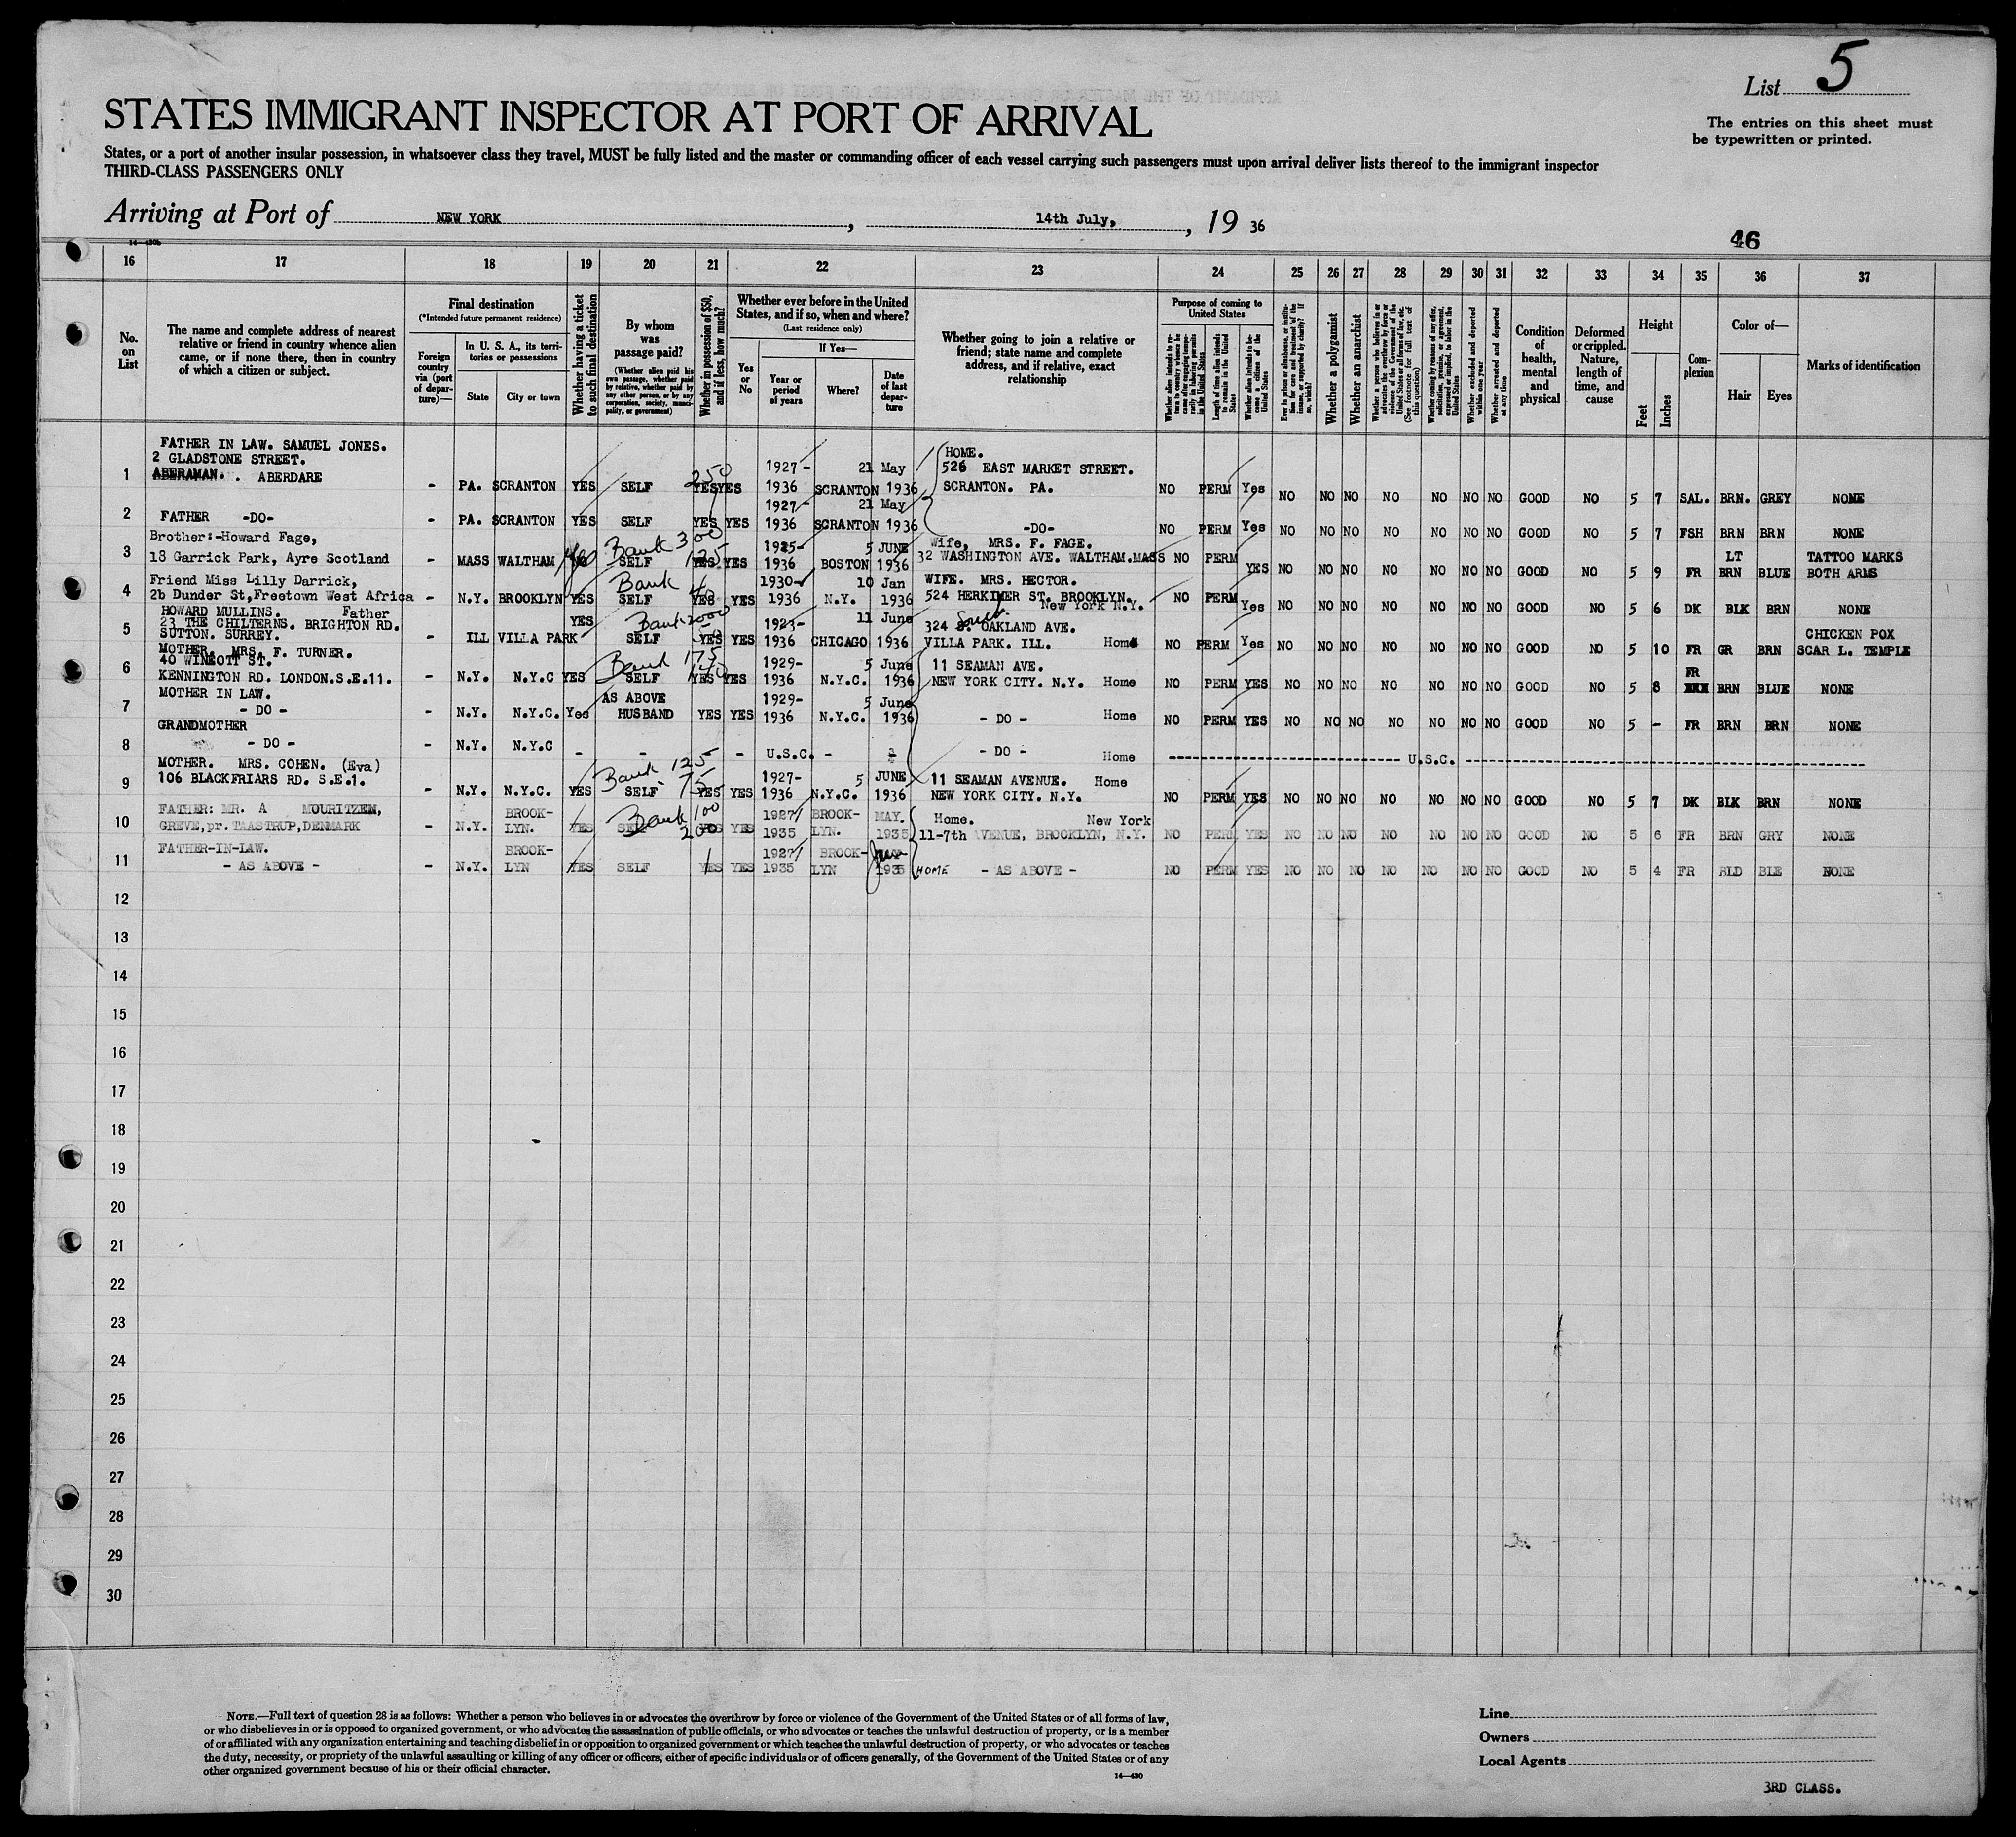 List 5
The entries on this sheet must
be typewritten or printed.
STATES IMMIGRANT INSPECTOR AT PORT OF ARRIVAL
States, or a port of another insular possession, in whatsoever class they travel, MUST be fully listed and the master or commanding officer of each vessel carrying such passengers must upon arrival deliver lists thereof to the immigrant inspector
THIRD-CLASS PASSENGERS ONLY
Arriving at Port of NEW YORK, 14th July, 19 36
14-430b
46
16 17 18 19 20 21 22 23 24 25 26 27 28 29 30 31 32 33 34 35 36 37
No. on List
The name and complete address of nearest relative or friend in country whence alien came, or if none there, then in country of which a citizen or subject.
Final destination
(*Intended future permanent residence)
Foreign country via (port of departure)—
In U. S. A., its territories or possessions
State
City or town
Whether having a ticket to such final destination
By whom was passage paid?
(Whether alien paid his own passage, whether paid by relative, whether paid by any other person, or by any corporation, society, municipality, or government)
Whether in possession of $50, and if less, how much?
Whether ever before in the United States, and if so, when and where?
(Last residence only)
Yes or No
If Yes—
Year or period of years
Where?
Date of last departure
Whether going to join a relative or friend; state name and complete address, and if relative, exact relationship
Purpose of coming to United States
Length of time alien intends to remain in the United States
Whether alien intends to become a citizen of the United States
Whether a polygamist
Whether an anarchist
Whether excluded and deported within one year
Whether arrested and deported at any time
Condition of health, mental and physical
Deformed or crippled. Nature, length of time, and cause
Height
Feet
Inches
Complexion
Color of—
Hair
Eyes
Marks of identification
FATHER IN LAW. SAMUEL JONES.
2 GLADSTONE STREET.
1 ABERAMAN. . ABERDARE - PA. SCRANTON YES SELF 250 YES YES 1927- 1936 SCRANTON 21 May 1936 HOME. 526 EAST MARKET STREET. SCRANTON. PA. NO PERM Yes NO NO NO NO NO NO NO GOOD NO 5 7 SAL. BRN. GREY NONE
2 FATHER -DO- - PA. SCRANTON YES SELF YES YES 1927- 1936 SCRANTON 21 May 1936 -DO- NO PERM Yes NO NO NO NO NO NO NO GOOD NO 5 7 FSH BRN BRN NONE
Brother:-Howard Fage,
3 18 Garrick Park, Ayre Scotland - MASS WALTHAM Yes Bank 300 SELF 125 YES YES 1925- 1936 BOSTON 5 JUNE 1936 Wife, MRS. F. FAGE. 32 WASHINGTON AVE. WALTHAM.MASS NO PERM YES NO NO NO NO NO NO NO GOOD NO 5 9 FR LT BRN BLUE TATTOO MARKS BOTH ARMS
Friend Miss Lilly Darrick,
4 2b Dunder St,Freetown West Africa - N.Y. BROOKLYN YES Bank SELF YES YES 1930- 1936 N.Y. 10 Jan 1936 WIFE. MRS. HECTOR. 524 HERKIMER ST. BROOKLYN. New York N.Y. NO PERM Yes NO NO NO NO NO NO NO GOOD NO 5 6 DK BLK BRN NONE
HOWARD MULLINS. Father
23 THE CHILTERNS. BRIGHTON RD.
5 SUTTON. SURREY. - ILL VILLA PARK YES Bank 2000 SELF YES YES 1923- 1936 CHICAGO 11 June 1936 324 S. South OAKLAND AVE. VILLA PARK. ILL. Home NO PERM Yes NO NO NO NO NO NO NO GOOD NO 5 10 FR GR BRN CHICKEN POX SCAR L. TEMPLE
MOTHER. MRS. F. TURNER.
40 WINCOTT ST.
6 KENNINGTON RD. LONDON.S.E.11. - N.Y. N.Y.C YES Bank 175 SELF YES YES 1929- 1936 N.Y.C. 5 June 1936 11 SEAMAN AVE. NEW YORK CITY. N.Y. Home NO PERM YES NO NO NO NO NO NO NO GOOD NO 5 8 FR BRN BLUE NONE
MOTHER IN LAW.
7 - DO - - N.Y. N.Y.C. Yes AS ABOVE HUSBAND YES YES 1929- 1936 N.Y.C. 5 June 1936 - DO - Home NO PERM YES NO NO NO NO NO NO NO GOOD NO 5 - FR BRN BRN NONE
GRANDMOTHER
8 - DO - - N.Y. N.Y.C - - - - U.S.C. - - DO - Home U.S.C.
MOTHER. MRS. COHEN. (Eva)
9 106 BLACKFRIARS RD. S.E.1. - N.Y. N.Y.C. YES Bank 125 SELF 75 YES YES 1927- 1936 N.Y.C. 5 JUNE 1936 11 SEAMAN AVENUE. Home NEW YORK CITY. N.Y. NO PERM YES NO NO NO NO NO NO NO GOOD NO 5 7 DK BLK BRN NONE
FATHER: MR. A MOURITZEN,
10 GREVE,pr. TAASTRUP,DENMARK - N.Y. BROOK-LYN. YES Bank 100 SELF 200 YES YES 1927 1935 BROOK-LYN. MAY. 1935 Home. New York 11-7th AVENUE, BROOKLYN, N.Y. NO PERM YES NO NO NO NO NO NO NO GOOD NO 5 6 FR BRN GRY NONE
FATHER-IN-LAW.
11 - AS ABOVE - - N.Y. BROOK-LYN YES SELF YES YES 1927 1935 BROOK-LYN 1935 HOME - AS ABOVE - NO PERM YES NO NO NO NO NO NO NO GOOD NO 5 4 FR BLD BLE NONE
12
13
14
15
16
17
18
19
20
21
22
23
24
25
26
27
28
29
30
NOTE.—Full text of question 28 is as follows: Whether a person who believes in or advocates the overthrow by force or violence of the Government of the United States or of all forms of law,
or who disbelieves in or is opposed to organized government, or who advocates the assassination of public officials, or who advocates or teaches the unlawful destruction of property, or is a member
of or affiliated with any organization entertaining and teaching disbelief in or opposition to organized government or which teaches the unlawful destruction of property, or who advocates or teaches
the duty, necessity, or propriety of the unlawful assaulting or killing of any officer or officers, either of specific individuals or of officers generally, of the Government of the United States or of any
other organized government because of his or their official character.
14-430
Line
Owners
Local Agents
3RD CLASS.